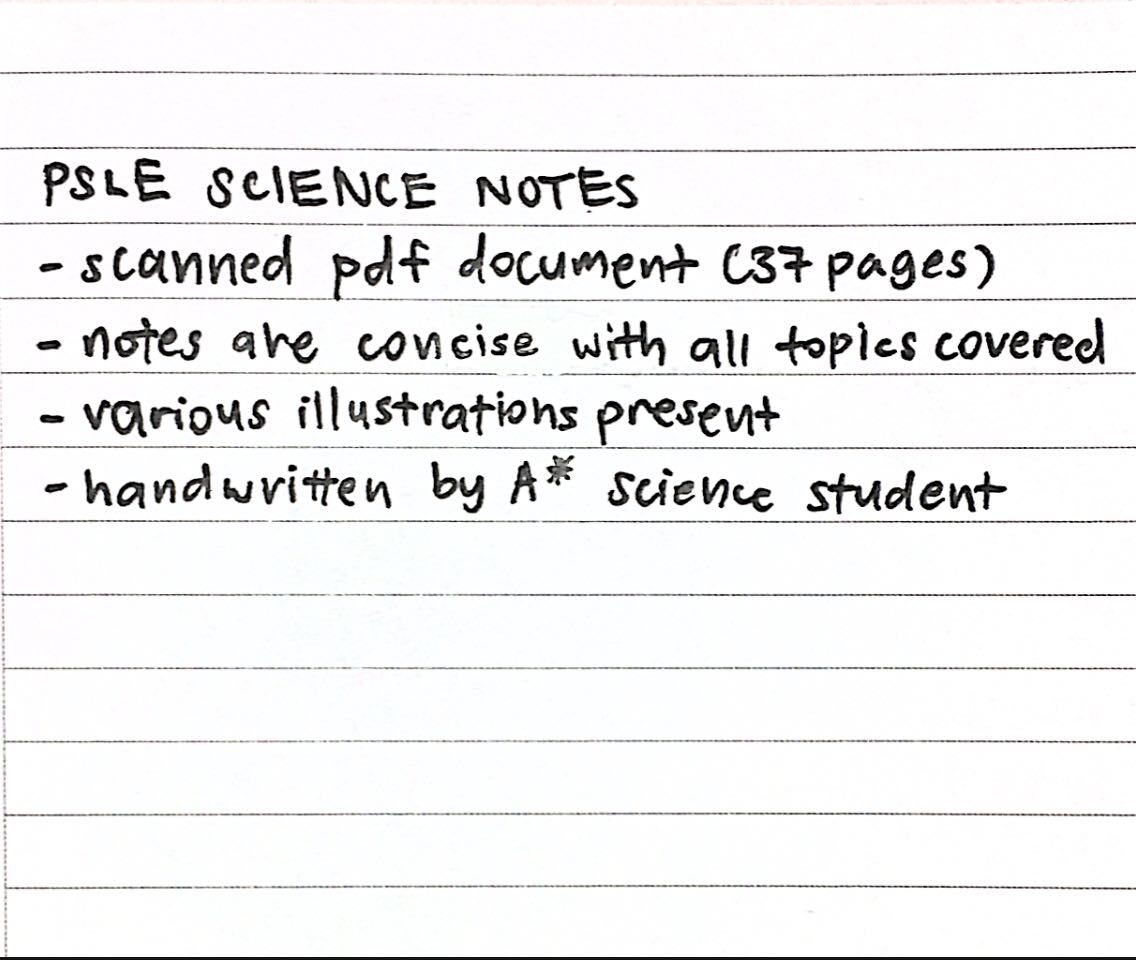 PSLE SCIENCE NOTES
- scanned pdf document (37 pages)
- notes are concise with all topics covered
- various illustrations present
- handwritten by A* science student